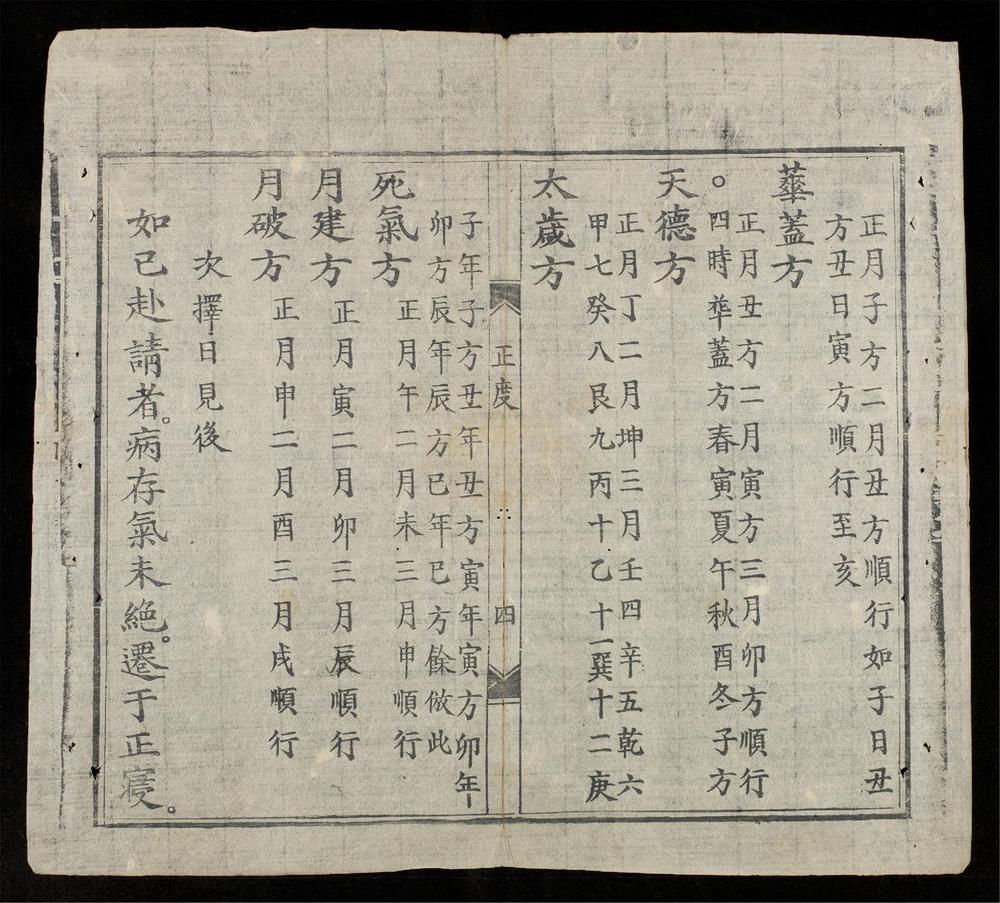 正月子方二月丑方順行如子日丑
方丑日寅方順行至亥
華蓋方
正月丑方二月寅方三月卯方順行
四時華蓋方春寅夏午秋酉冬子方
。天德方
正月丁二月坤三月壬四辛五乾六
甲七癸八艮九丙十乙十一巽十二庚
太歲方
正度 四
子年子方丑年丑方寅年寅方卯年
卯方辰年辰方巳年巳方餘倣此
死氣方 正月午二月未三月申順行
月建方 正月寅二月卯三月辰順行
月破方 正月申二月酉三月戌順行
次擇日見後
如已赴請者。病存氣未絕。遷于正寢。